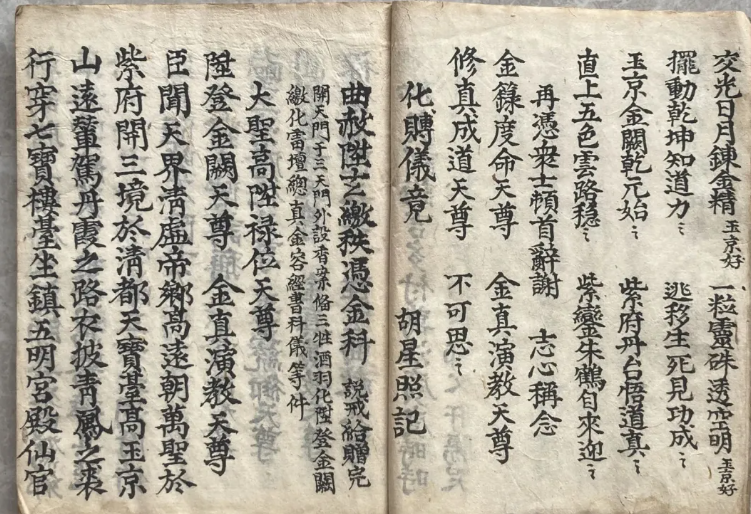 交光日月錬金精 玉京好 一粒靈硃透空明 玉京好
擺動乾坤知道力ミ 逃移生死見功成ミ
玉京金闕乾元始ミ 紫府丹台悟道真ミ
直上五色雲路穏ミ 紫鸞朱鶴自來迎ミ
再憑衆士頓首辭謝 志心稱念
金籙度命天尊 金真演教天尊
修真成道天尊 不可思ミ
化賻儀竟 胡星照記
曲赦陞士繳秩憑金科 説戒給贈完
開天門于三天門外設香案俻三牲酒羽化陞登金闕
繳化雷壇總真金容經書科儀等件
大聖高陞禄位天尊
陞登金闕天尊 金真演教天尊
臣聞天界清虚帝鄉高遠朝萬聖於
紫府開三境於清都天寶臺高玉京
山遠輦駕丹霞之路衣披青鳳之裘
行穿七寶樓臺坐鎮五明宮殿仙官